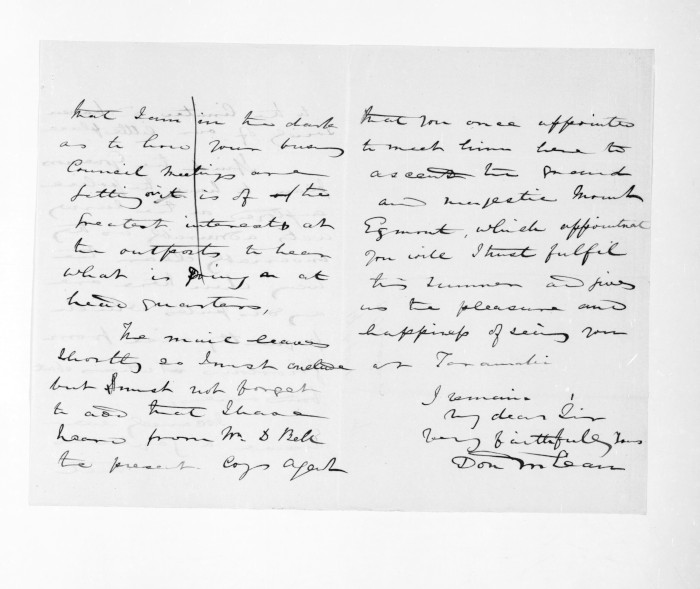 that I am in the dark
as to how your busy
Council Meetings are
getting on it is of the
greatest interest at
the outposts to hear
what is going on at
head quarters,
The mail leaves
shortly so I must conclude
but I must not forget
to add that I have
heard from Mr D Bell
the present Coys Agent
that you once appointed
to meet him here to
ascend the grand
and majestic Mount
Egmont, which appointment
you will I trust fulfil
this summer and give
us the pleasure and
happiness of seeing you
at Taranaki
I remain
My dear Sir
Very faithfully Yours
Don McLean